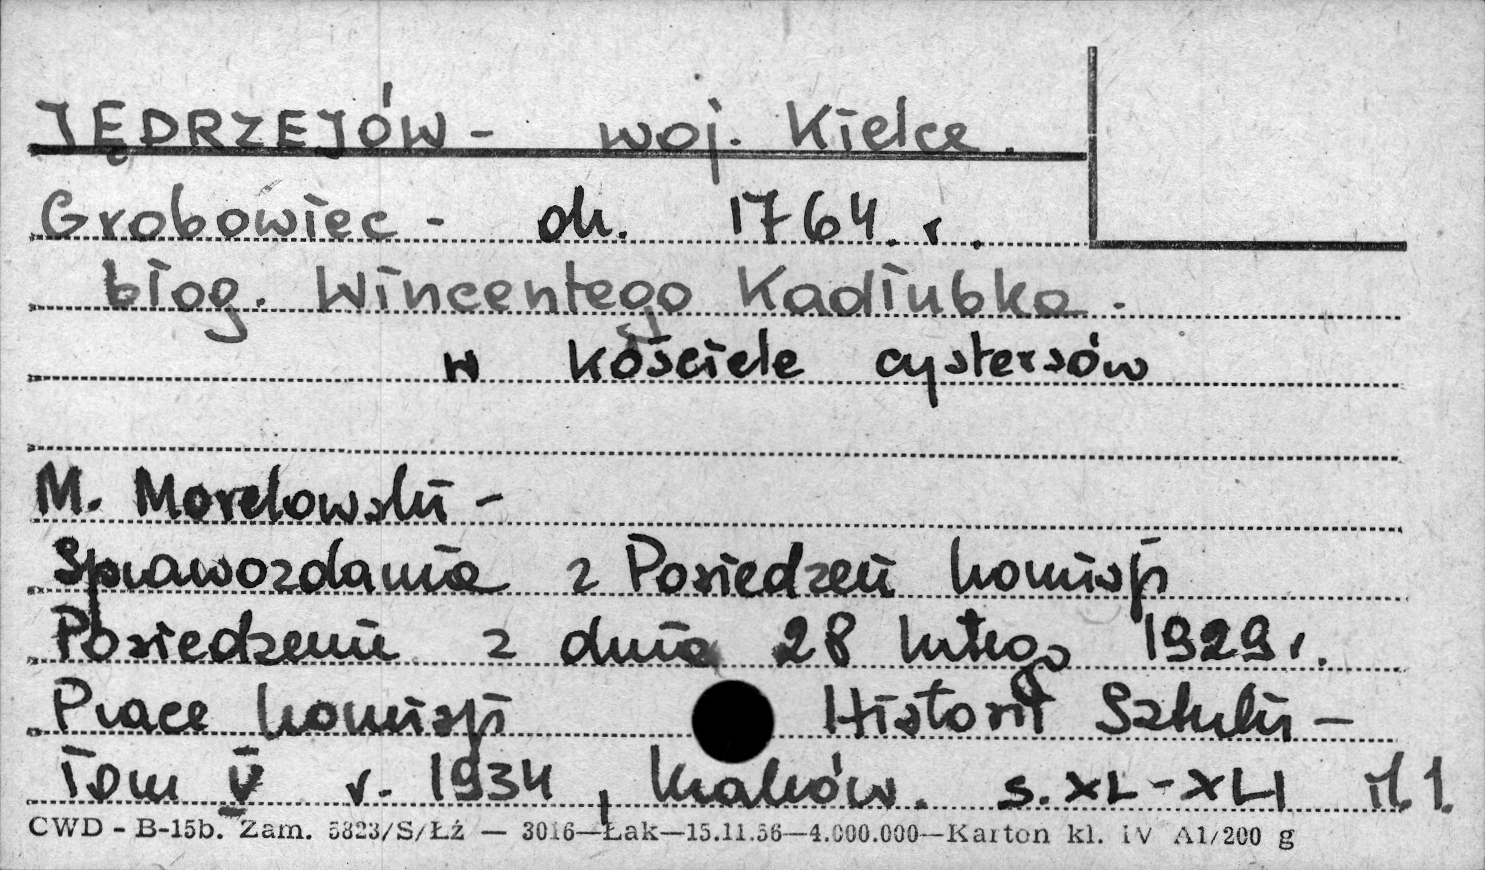 JĘDRZEJÓW - woj. Kielce.
Grobowiec - ok. 1764. r.
błog. Wincentego Kadłubka.
w kościele cystersów
M. Morelowski -
Sprawozdania z Posiedzeń komisji
Posiedzenie z dnia 28 lutego 1929 r.
Prace komisji Historii Sztuki -
Tom V r. 1934, Kraków. s. XL-XLI il. 1.
CWD - B-15b. Zam. 5323/S/Łż — 3016—Łak—15.11.56—4.000.000—Karton kl. IV A1/200 g